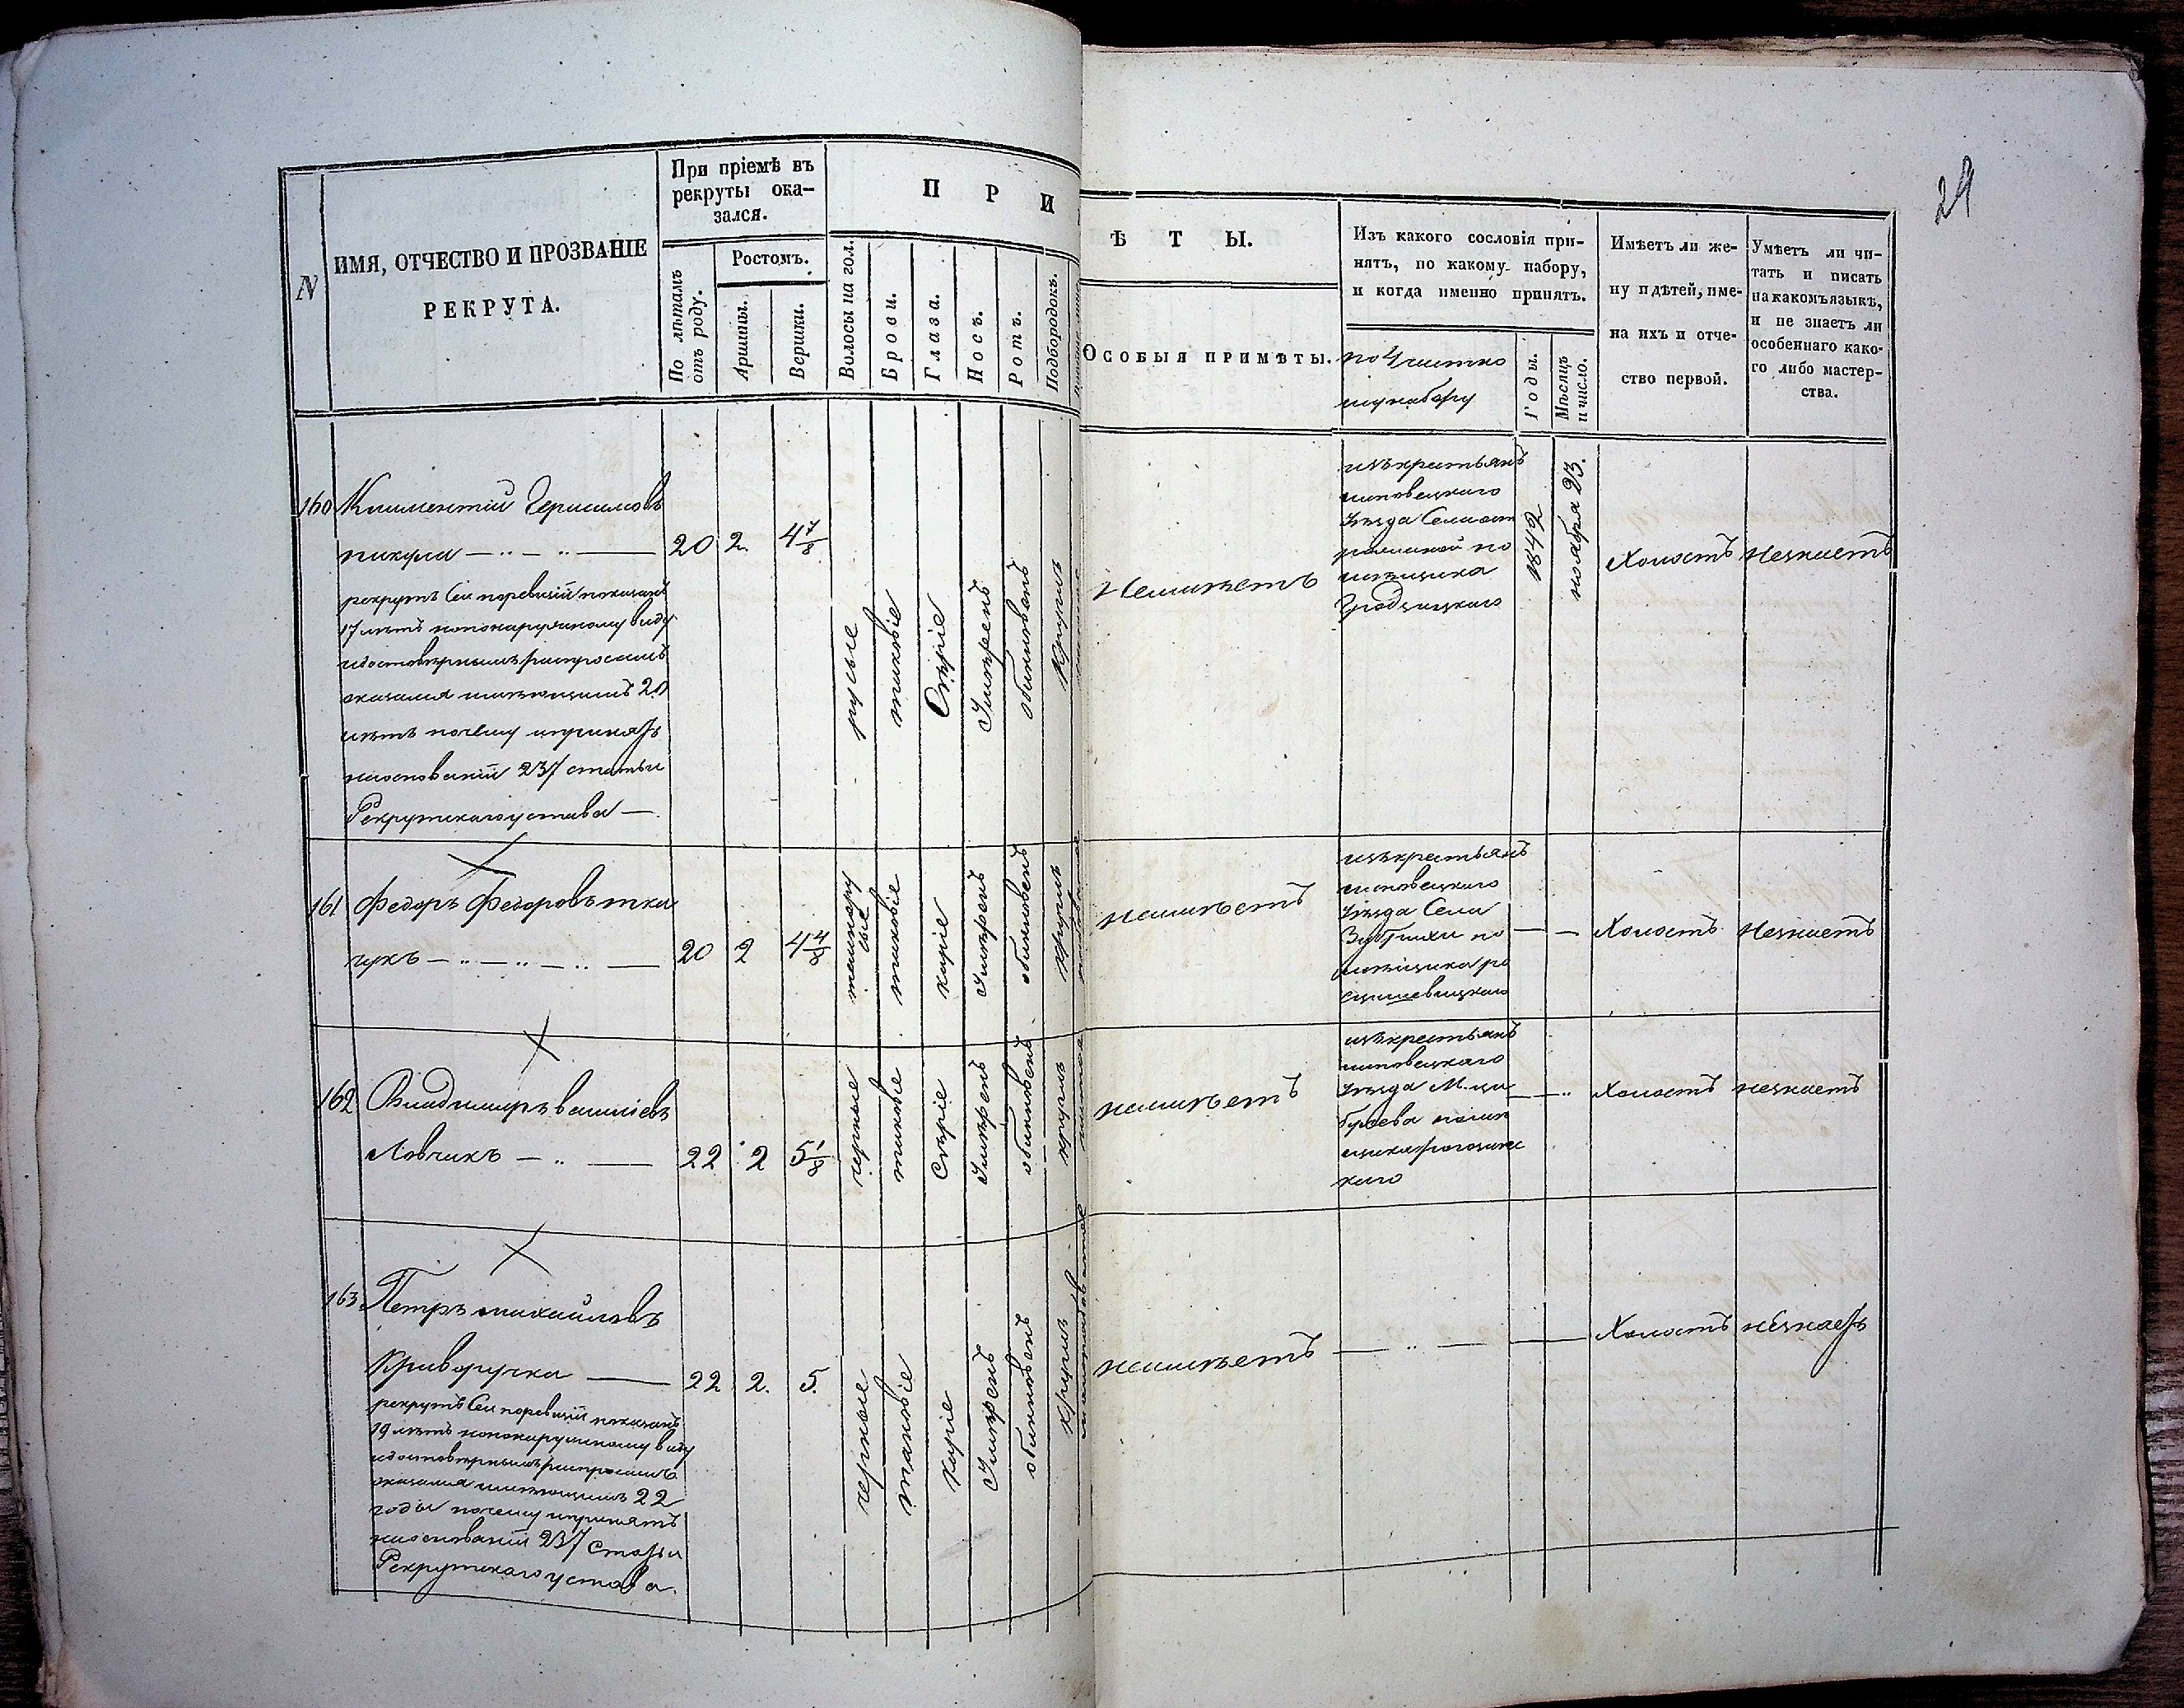 29
N
ИМЯ, ОТЧЕСТВО И ПРОЗВАНІЕ
РЕКРУТА.
При пріемѣ въ
рекруты ока-
зался.
По лѣтамъ
отъ роду.
Ростомъ.
Аршины.
Вершки.
П Р И
Волосы на гол.
Брови.
Глаза.
Носъ.
Ротъ.
Подбородокъ.
Ѣ Т Ы.
Особыя примѣты.
Изъ какого сословія при-
нятъ, по какому набору,
и когда именно принятъ.
по 4 частно
му набору
Годы.
Мѣсяцъ
и число.
Имѣетъ ли же-
ну и дѣтей, име-
на ихъ и отче-
ство первой.
Умѣетъ ли чи-
тать и писать
на какомъ языкѣ,
и не знаетъ ли
особеннаго како-
го либо мастер-
ства.
160
Климентій Герасимовъ
пикула
рекрутъ Сей поревизіи показанъ
17 лѣтъ но по наружному виду
и достовѣрнымъ распросамъ
оказался имѣющимъ 20
лѣтъ почему и принятъ
на основаніи 237 статьи
Рекрутскаго устава
20
2
4 7/8
русые
таковіе
Сѣріе
Умѣренъ
обыкновенъ
Круглъ
Неимѣетъ
изъ крестьянъ
липовецкаго
уѣзда Села
по
мѣщика
1842
ноября 23.
Холостъ
Незнаетъ
161
Федоръ Федоровъ тка
чукъ
20
2
4 4/8
темнору
сые
таковіе
каріе
Умѣренъ
обыкновенъ
круглъ
неимѣетъ
изъ крестьянъ
липовецкаго
уѣзда Села
по
мѣщика ро
Холостъ
Незнаетъ
162
Владимиръ василіевъ
Ловчикъ
22
2
5 1/8
черные
таковіе
Сѣріе
Умѣренъ
обыкновенъ
круглъ
неимѣетъ
изъ крестьянъ
липовецкаго
уѣзда М. ци
булева помѣ
каго
Холостъ
незнаетъ
163
Петръ михайловъ
Криворучка
рекрутъ Сей поревизіи показанъ
19 лѣтъ но по наружному виду
и достовѣрнымъ распросамъ
оказался имѣющимъ 22
годы почему и принятъ
на основаніи 237 Статьи
Рекрутскаго устава.
22
2.
5.
черные
таковіе
каріе
Умѣренъ
обыкновенъ
круглъ
неимѣетъ
Холостъ
незнаетъ